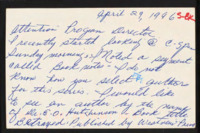 April 29, 1996
Attention Program Director
I recently started looking @ C-Span
Sunday morning. Noted a segment
called Book note - I do not
know how you select author
for this series. I would like
to see an author by the name
of Dr. E.O. Hutchinson Book title
Betrayed Published by